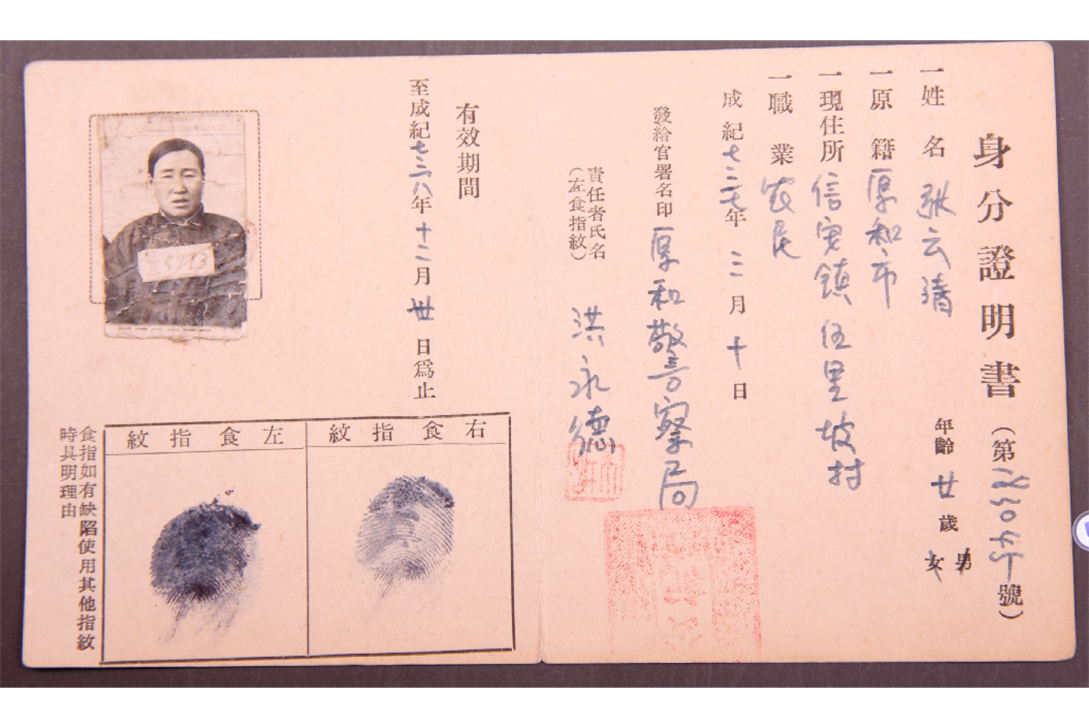 身分證明書(第號)
年齡廿歲 男 女
一姓名 张云清
一原籍 厚和市
一現住所 信镇伍里坡村
一職業 农民
成紀七三七年三月十日
發給官署名印 厚和警察局
責任者氏名 洪永德
(左食指紋)
有效期間
至成紀七三八年十二月卅日爲止
右食指紋
左食指紋
食指如有缺陷使用其他指紋
時具明理由